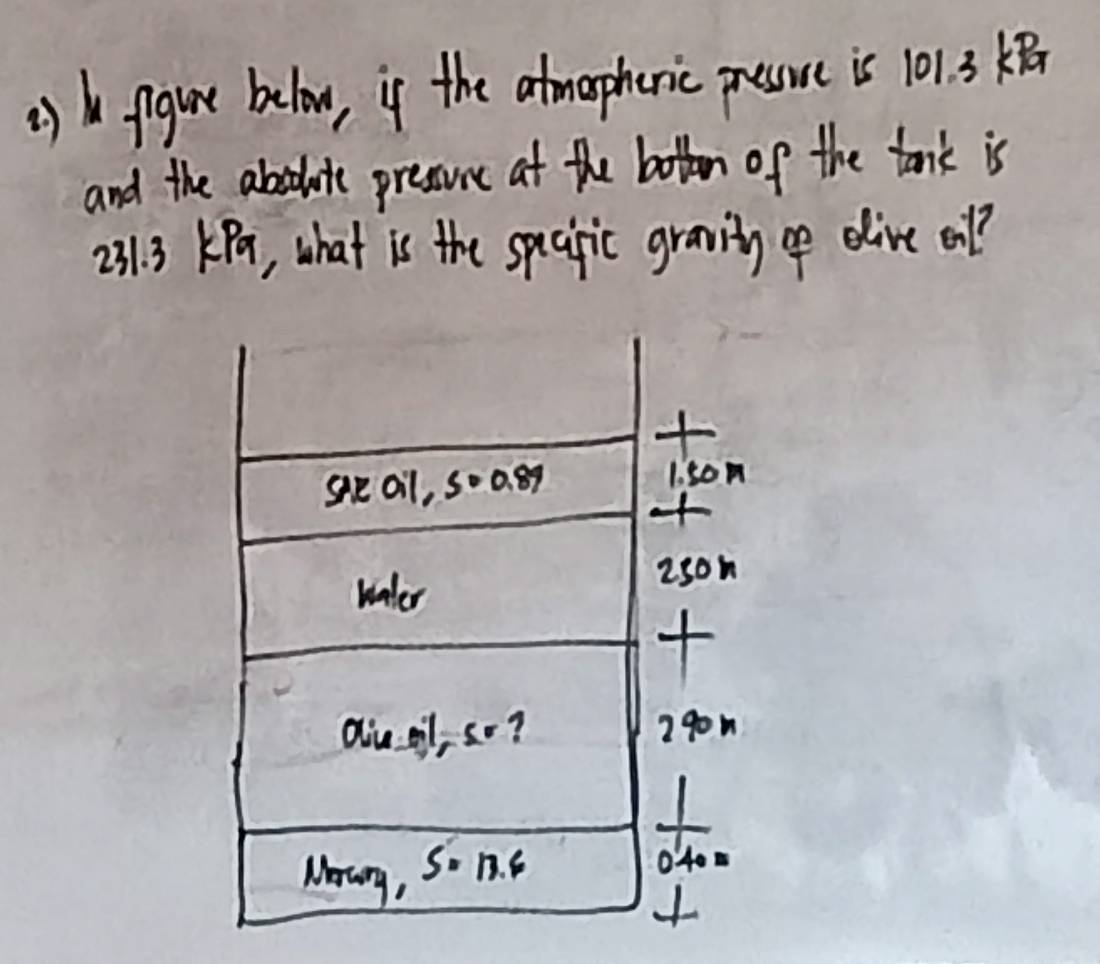 2.) In figure below, if the atmospheric pressure is 101.3 kPa
and the absolute pressure at the bottom of the tank is
231.3 kPa, what is the specific gravity of olive oil?
SAE oil, S = 0.89
1.50 m
Water
2.50 m
Olive oil, s = ?
2.90 m
Mercury, S = 13.6
0.40 m